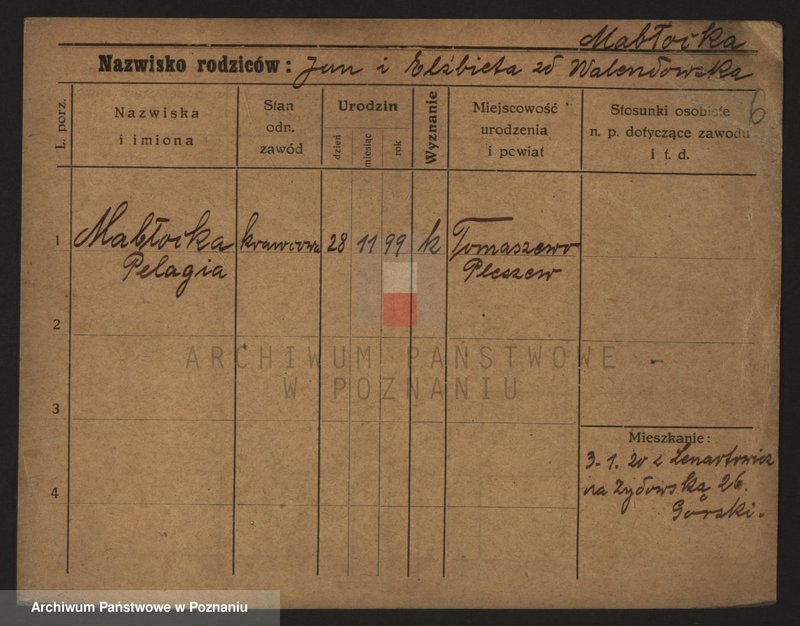 Mabłocka
Nazwisko rodziców: Jan i Elżbieta zd Walendowska
6
L. porz.
Nazwiska
i imiona
Stan
odn.
zawód
Urodzin
dzień
miesiąc
rok
Wyznanie
Miejscowość
urodzenia
i powiat
Stosunki osobiste
n. p. dotyczące zawodu
i t. d.
1
Mabłocka
Pelagia
krawcowa
28
11
99
k
Tomaszewo
Pleszew
2
ARCHIWUM PAŃSTWOWE
W POZNANIU
3
4
Mieszkanie:
3.1.20 z Lenartowicz
na Żydowską 26.
Górski.
Archiwum Państwowe w Poznaniu